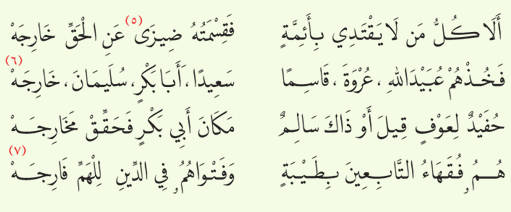 أَلَا كُلُّ مَن لَا يَقْتَدِي بِأَئِمَّةٍ فَقِسْمَتُهُ ضِيزَى (٥) عَنِ الْحَقِّ خَارِجَهْ
فَخُذْهُمْ عُبَيْدَاللهِ ، عُرْوَةَ ، قَاسِمًا سَعِيدًا، أَبَا بَكْرٍ، سُلَيمَانَ، خَارِجَهْ (٦)
حُفَيْدٌ لِعَوْفٍ قِيلَ أَوْ ذَاكَ سَالِمٌ مَكَانَ أَبِي بَكْرٍ فَحَقِّقْ مَخَارِجَهْ
هُمُ فُقَهَاءُ التَّابِعِينَ بِطَيْبَةٍ وَفَتْوَاهُمُ فِي الدِّينِ لِلْهَمِّ فَارِجَهْ (٧)